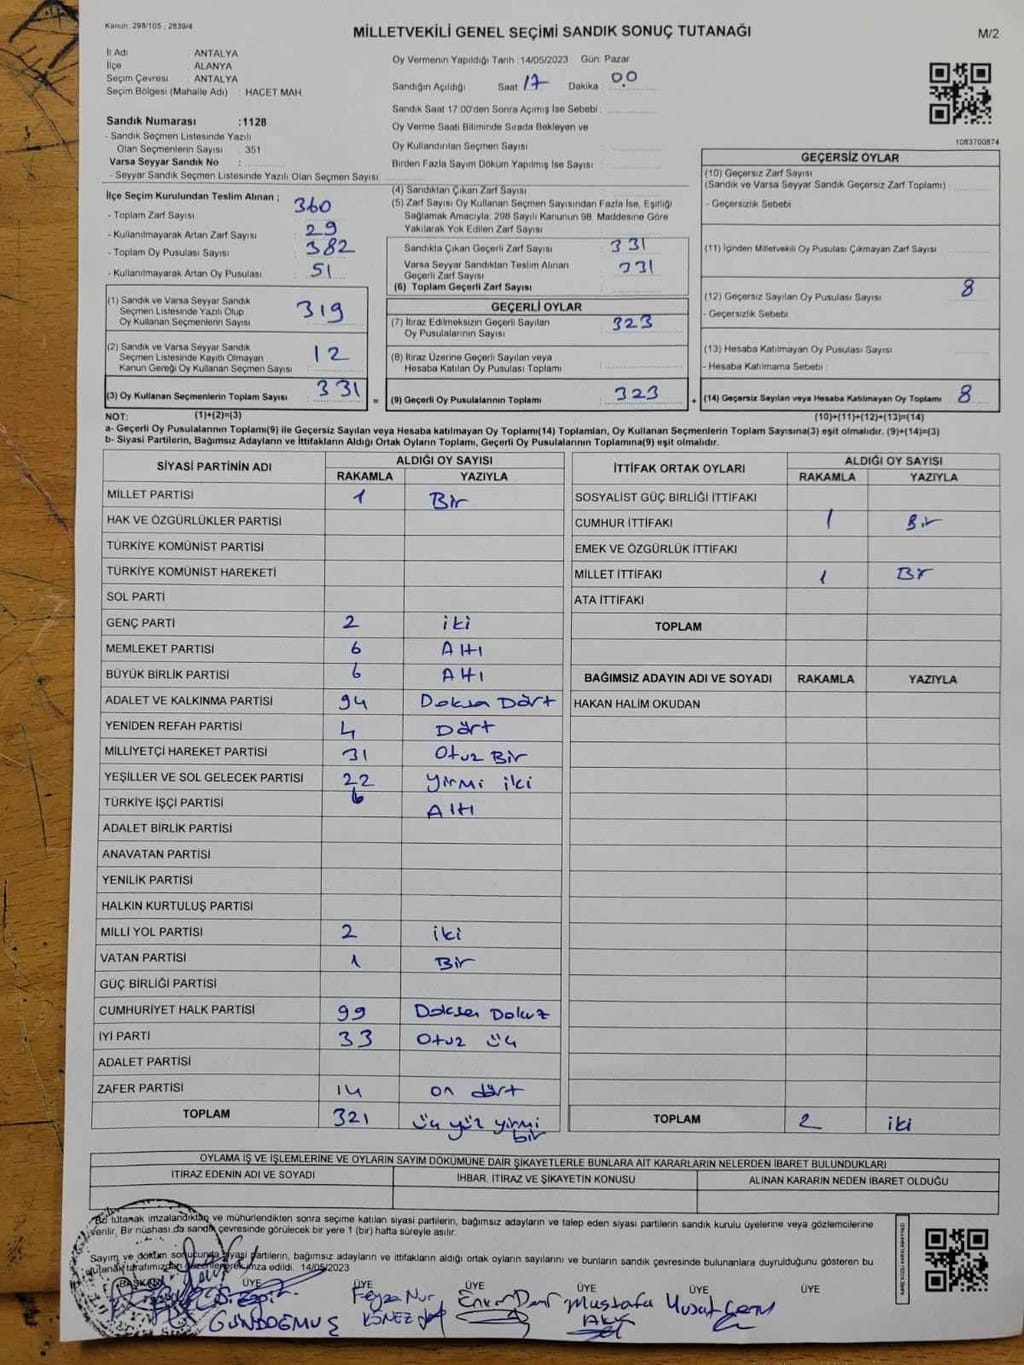 Kanun: 298/105 , 2839/4
MİLLETVEKİLİ GENEL SEÇİMİ SANDIK SONUÇ TUTANAĞI
M/2
İl Adı : ANTALYA
İlçe : ALANYA
Seçim Çevresi : ANTALYA
Seçim Bölgesi (Mahalle Adı) : HACET MAH.
Oy Vermenin Yapıldığı Tarih :14/05/2023 Gün: Pazar
Sandığın Açıldığı Saat 17 Dakika 00
Sandık Saat 17:00'den Sonra Açımış İse Sebebi :
Oy Verme Saati Bitiminde Sırada Bekleyen ve
Oy Kullandırılan Seçmen Sayısı :
Birden Fazla Sayım Döküm Yapılmış İse Sayısı :
1083700874
Sandık Numarası :1128
- Sandık Seçmen Listesinde Yazılı
Olan Seçmenlerin Sayısı : 351
Varsa Seyyar Sandık No :
- Seyyar Sandık Seçmen Listesinde Yazılı Olan Seçmen Sayısı
İlçe Seçim Kurulundan Teslim Alınan ;
- Toplam Zarf Sayısı 360
- Kullanılmayarak Artan Zarf Sayısı 29
- Toplam Oy Pusulası Sayısı 382
- Kullanılmayarak Artan Oy Pusulası 51
(1) Sandık ve Varsa Seyyar Sandık
Seçmen Listesinde Yazılı Olup
Oy Kullanan Seçmenlerin Sayısı 319
(2) Sandık ve Varsa Seyyar Sandık
Seçmen Listesinde Kayıtlı Olmayan
Kanun Gereği Oy Kullanan Seçmen Sayısı 12
(3) Oy Kullanan Seçmenlerin Toplam Sayısı 331 =
(4) Sandıktan Çıkan Zarf Sayısı
(5) Zarf Sayısı Oy Kullanan Seçmen Sayısından Fazla İse, Eşitliği
Sağlamak Amacıyla; 298 Sayılı Kanunun 98. Maddesine Göre
Yakılarak Yok Edilen Zarf Sayısı
Sandıkta Çıkan Geçerli Zarf Sayısı 331
Varsa Seyyar Sandıktan Teslim Alınan
Geçerli Zarf Sayısı 331
(6) Toplam Geçerli Zarf Sayısı
GEÇERLİ OYLAR
(7) İtiraz Edilmeksizin Geçerli Sayılan
Oy Pusulalarının Sayısı 323
(8) İtiraz Üzerine Geçerli Sayılan veya
Hesaba Katılan Oy Pusulası Toplamı
(9) Geçerli Oy Pusulalarının Toplamı 323 +
GEÇERSİZ OYLAR
(10) Geçersiz Zarf Sayısı
(Sandık ve Varsa Seyyar Sandık Geçersiz Zarf Toplamı)
- Geçersizlik Sebebi
(11) İçinden Milletvekili Oy Pusulası Çıkmayan Zarf Sayısı
(12) Geçersiz Sayılan Oy Pusulası Sayısı 8
- Geçersizlik Sebebi
(13) Hesaba Katılmayan Oy Pusulası Sayısı
- Hesaba Katılmama Sebebi
(14) Geçersiz Sayılan veya Hesaba Katılmayan Oy Toplamı 8
NOT: (1)+(2)=(3) (10)+(11)+(12)+(13)=(14)
a- Geçerli Oy Pusulasının Toplamı(9) ile Geçersiz Sayılan veya Hesaba katılmayan Oy Toplamı(14) Toplamları, Oy Kullanan Seçmenlerin Toplam Sayısına(3) eşit olmalıdır. (9)+(14)=(3)
b- Siyasi Partilerin, Bağımsız Adayların ve İttifakların Aldığı Ortak Oyların Toplamı, Geçerli Oy Pusulalarının Toplamına(9) eşit olmalıdır.
SİYASİ PARTİNİN ADI ALDIĞI OY SAYISI
RAKAMLA YAZIYLA
MİLLET PARTİSİ 1 Bir
HAK VE ÖZGÜRLÜKLER PARTİSİ
TÜRKİYE KOMÜNİST PARTİSİ
TÜRKİYE KOMÜNİST HAREKETİ
SOL PARTİ
GENÇ PARTİ 2 iki
MEMLEKET PARTİSİ 6 Altı
BÜYÜK BİRLİK PARTİSİ 6 Altı
ADALET VE KALKINMA PARTİSİ 94 Doksan Dört
YENİDEN REFAH PARTİSİ 4 Dört
MİLLİYETÇİ HAREKET PARTİSİ 31 Otuz Bir
YEŞİLLER VE SOL GELECEK PARTİSİ 22 yirmi iki
TÜRKİYE İŞÇİ PARTİSİ 6 Altı
ADALET BİRLİK PARTİSİ
ANAVATAN PARTİSİ
YENİLİK PARTİSİ
HALKIN KURTULUŞ PARTİSİ
MİLLİ YOL PARTİSİ 2 iki
VATAN PARTİSİ 1 Bir
GÜÇ BİRLİĞİ PARTİSİ
CUMHURİYET HALK PARTİSİ 99 Doksan Dokuz
İYİ PARTİ 33 Otuz üç
ADALET PARTİSİ
ZAFER PARTİSİ 14 on dört
TOPLAM 321 üç yüz yirmi
bir
İTTİFAK ORTAK OYLARI ALDIĞI OY SAYISI
RAKAMLA YAZIYLA
SOSYALİST GÜÇ BİRLİĞİ İTTİFAKI
CUMHUR İTTİFAKI 1 Bir
EMEK VE ÖZGÜRLÜK İTTİFAKI
MİLLET İTTİFAKI 1 Bir
ATA İTTİFAKI
TOPLAM
BAĞIMSIZ ADAYIN ADI VE SOYADI RAKAMLA YAZIYLA
HAKAN HALİM OKUDAN
TOPLAM 2 iki
OYLAMA İŞ VE İŞLEMLERİNE VE OYLARIN SAYIM DÖKÜMÜNE DAİR ŞİKAYETLERLE BUNLARA AİT KARARLARIN NELERDEN İBARET BULUNDUKLARI
İTİRAZ EDENİN ADI VE SOYADI İHBAR, İTİRAZ VE ŞİKAYETİN KONUSU ALINAN KARARIN NEDEN İBARET OLDUĞU
Bu tutanak imzalandıktan ve mühürlendikten sonra seçime katılan siyasi partilerin, bağımsız adayların ve talep eden siyasi partilerin sandık kurulu üyelerine veya gözlemcilerine
verilir. Bir nüshası da sandık çevresinde görülecek bir yere 1 (bir) hafta süreyle asılır.
Sayım ve döküm sonucunda siyasi partilerin, bağımsız adayların ve ittifakların aldığı ortak oyların sayılarını ve bunların sandık çevresinde bulunanlara duyrulduğunu gösteren bu
tutanak tarafımızdan düzenlenerek imza edildi. 14/05/2023
BAŞKAN ÜYE ÜYE ÜYE ÜYE ÜYE
GÜNDOĞMUŞ
Feyza Nur
Mustafa